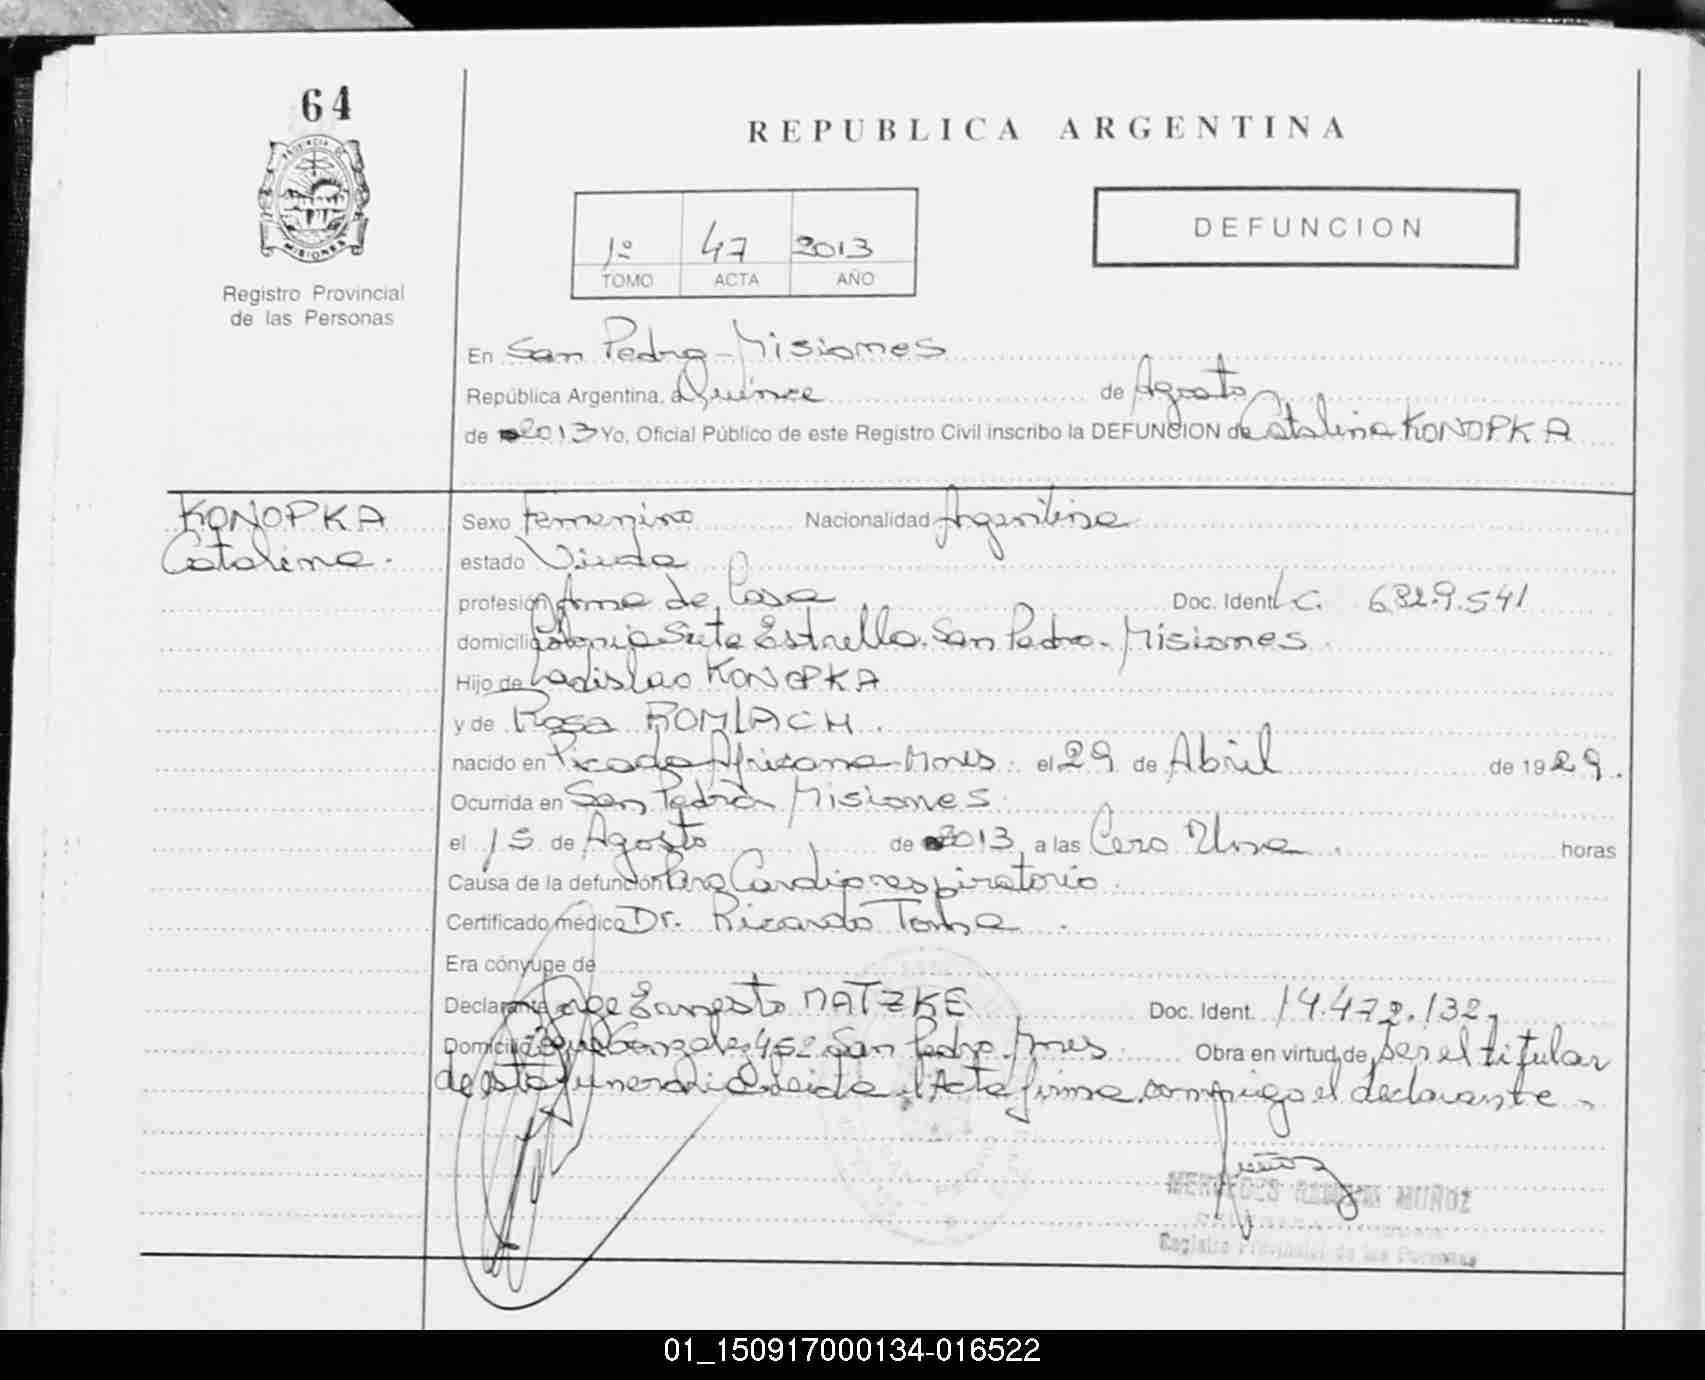 64
REPUBLICA ARGENTINA
PROVINCIA DE
MISIONES
1º 47 2013
TOMO ACTA AÑO
DEFUNCION
Registro Provincial
de las Personas
En San Pedro - Misiones
República Argentina, a Quince de Agosto
de 2013 Yo, Oficial Público de este Registro Civil inscribo la DEFUNCION de Catalina KONOPKA
KONOPKA
Catalina.
Sexo Femenino Nacionalidad Argentina
estado Viuda
profesión Ama de Casa Doc. Ident. L.C. 6.829.541
domicilio Colonia Siete Estrella. San Pedro - Misiones
Hijo de Ladislao KONOPKA
y de Rosa ROMLACH.
nacido en Picada Africana - Mnes. el 29 de Abril de 1929.
Ocurrida en San Pedro Misiones
el 15 de Agosto de 2013 a las Cero Una horas
Causa de la defunción Paro Cardiorespiratorio.
Certificado médico Dr. Ricardo
Era cónyuge de
Declarante Jorge Ernesto MATZKE Doc. Ident. 14.472.132,
Domicilio Gonzalez 452 San Pedro - Mnes Obra en virtud de ser el titular
de esta funeraria Leida el Acta firma conmigo el declarante -
MERCEDES RAMONA MUÑOZ
Registro Provincial de las Personas
01_150917000134-016522